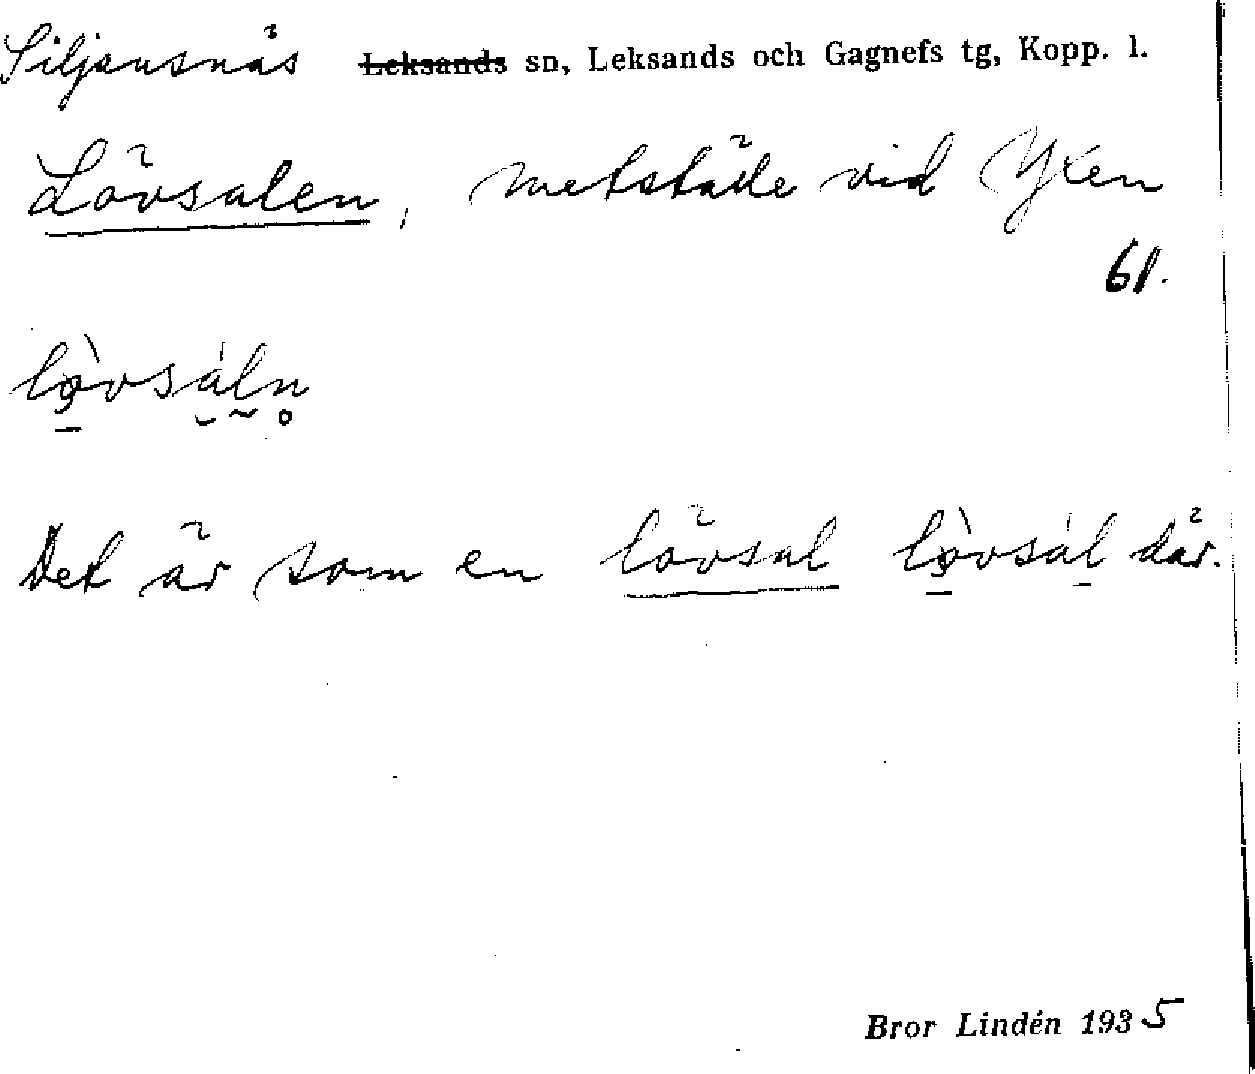 Siljansnäs Leksands sn, Leksands och Gagnefs tg, Kopp. l.
Lövsalen, metställe vid Yxen
61.
lò̱vsáln̥
Det är som en lövsal lò̱vsál där.
Bror Lindén 1935